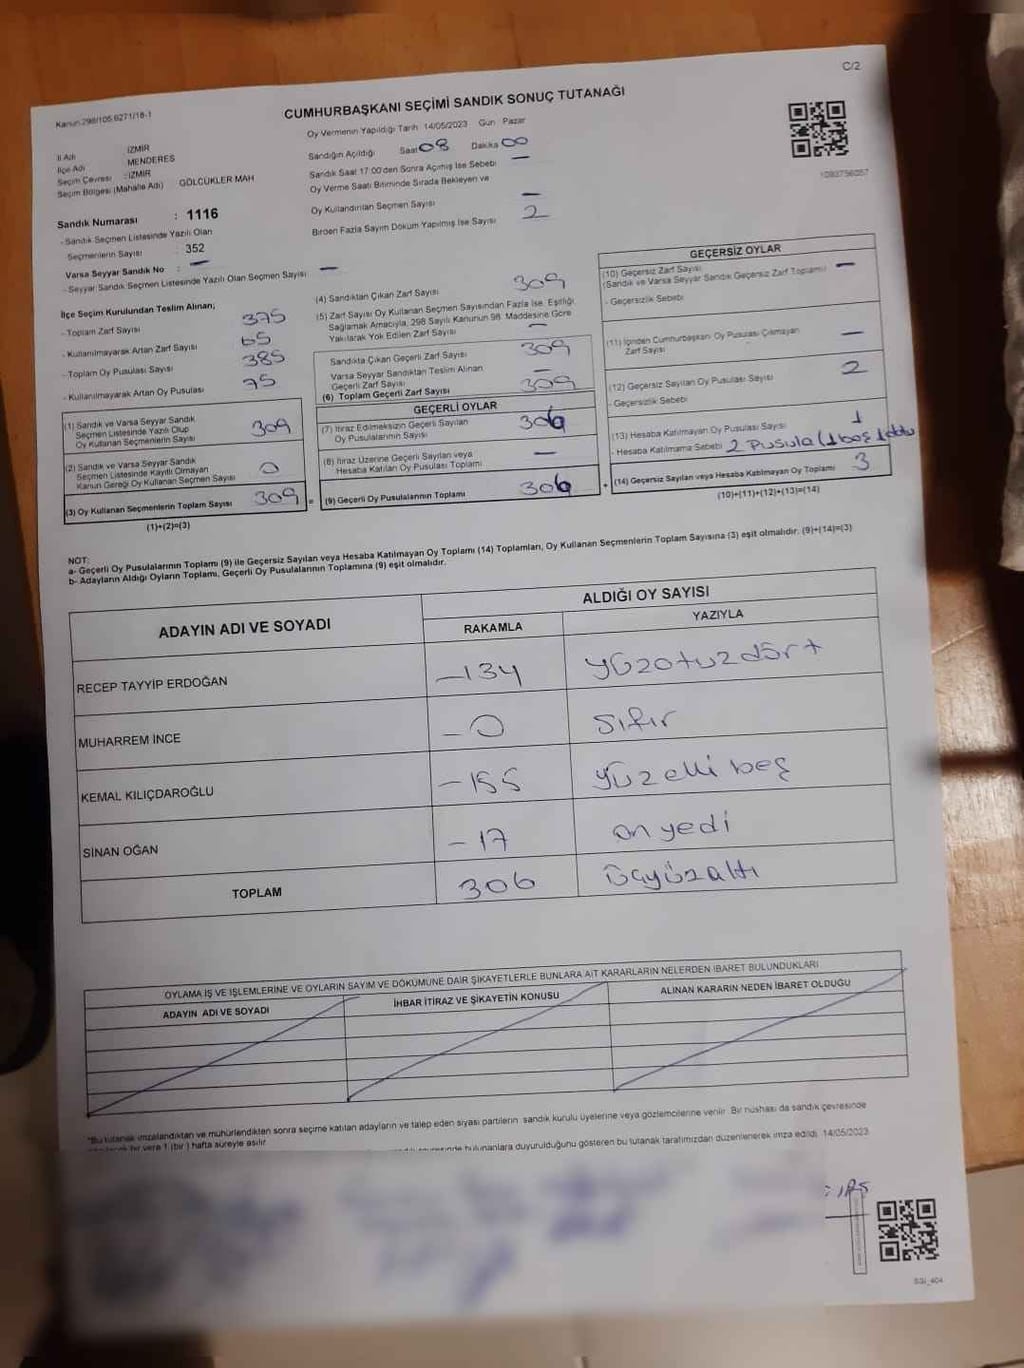 C/2
Kanun:298/105,6271/18-1
CUMHURBAŞKANI SEÇİMİ SANDIK SONUÇ TUTANAĞI
Oy Vermenin Yapıldığı Tarih 14/05/2023 Gün Pazar
İl Adı İZMİR
İlçe Adı MENDERES
Seçim Çevresi : İZMİR
Seçim Bölgesi (Mahalle Adı) GÖLCÜKLER MAH
Sandığın Açıldığı Saat 08 Dakika 00
Sandık Saat 17:00'den Sonra Açılmış İse Sebebi —
Oy Verme Saati Bitiminde Sırada Bekleyen ve
Oy Kullandırılan Seçmen Sayısı —
Birden Fazla Sayım Döküm Yapılmış İse Sayısı 2
1093756057
Sandık Numarası : 1116
- Sandık Seçmen Listesinde Yazılı Olan
Seçmenlerin Sayısı : 352
Varsa Seyyar Sandık No : —
- Seyyar Sandık Seçmen Listesinde Yazılı Olan Seçmen Sayısı —
İlçe Seçim Kurulundan Teslim Alınan;
- Toplam Zarf Sayısı 375
- Kullanılmayarak Artan Zarf Sayısı 65
- Toplam Oy Pusulası Sayısı 385
- Kullanılmayarak Artan Oy Pusulası 75
(1) Sandık ve Varsa Seyyar Sandık
Seçmen Listesinde Yazılı Olup
Oy Kullanan Seçmenlerin Sayısı 309
(2) Sandık ve Varsa Seyyar Sandık
Seçmen Listesinde Kayıtlı Olmayan
Kanun Gereği Oy Kullanan Seçmen Sayısı 0
(3) Oy Kullanan Seçmenlerin Toplam Sayısı 309 =
(1)+(2)=(3)
(4) Sandıktan Çıkan Zarf Sayısı 309
(5) Zarf Sayısı Oy Kullanan Seçmen Sayısından Fazla İse, Eşitliği
Sağlamak Amacıyla, 298 Sayılı Kanunun 98. Maddesine Göre
Yakılarak Yok Edilen Zarf Sayısı —
Sandıkta Çıkan Geçerli Zarf Sayısı 309
Varsa Seyyar Sandıktan Teslim Alınan
Geçerli Zarf Sayısı —
(6) Toplam Geçerli Zarf Sayısı 309
GEÇERLİ OYLAR
(7) İtiraz Edilmeksizin Geçerli Sayılan
Oy Pusulalarının Sayısı 306
(8) İtiraz Üzerine Geçerli Sayılan veya
Hesaba Katılan Oy Pusulası Toplamı —
(9) Geçerli Oy Pusulalarının Toplamı 306 +
GEÇERSİZ OYLAR
(10) Geçersiz Zarf Sayısı
(Sandık ve Varsa Seyyar Sandık Geçersiz Zarf Toplamı) —
- Geçersizlik Sebebi
(11) İçinden Cumhurbaşkanı Oy Pusulası Çıkmayan
Zarf Sayısı —
(12) Geçersiz Sayılan Oy Pusulası Sayısı 2
- Geçersizlik Sebebi
(13) Hesaba Katılmayan Oy Pusulası Sayısı 1
- Hesaba Katılmama Sebebi 2 pusula (1 boş 1 dolu
(14) Geçersiz Sayılan veya Hesaba Katılmayan Oy Toplamı 3
(10)+(11)+(12)+(13)=(14)
NOT:
a- Geçerli Oy Pusulalarının Toplamı (9) ile Geçersiz Sayılan veya Hesaba Katılmayan Oy Toplamı (14) Toplamları, Oy Kullanan Seçmenlerin Toplam Sayısına (3) eşit olmalıdır. (9)+(14)=(3)
b- Adayların Aldığı Oyların Toplamı, Geçerli Oy Pusulalarının Toplamına (9) eşit olmalıdır.
ADAYIN ADI VE SOYADI
ALDIĞI OY SAYISI
RAKAMLA YAZIYLA
RECEP TAYYİP ERDOĞAN –134 yüzotuzdört
MUHARREM İNCE – 0 sıfır
KEMAL KILIÇDAROĞLU –155 yüzelli beş
SİNAN OĞAN – 17 on yedi
TOPLAM 306 üçyüzaltı
OYLAMA İŞ VE İŞLEMLERİNE VE OYLARIN SAYIM VE DÖKÜMÜNE DAİR ŞİKAYETLERLE BUNLARA AİT KARARLARIN NELERDEN İBARET BULUNDUKLARI
ADAYIN ADI VE SOYADI İHBAR İTİRAZ VE ŞİKAYETİN KONUSU ALINAN KARARIN NEDEN İBARET OLDUĞU
*Bu tutanak imzalandıktan ve mühürlendikten sonra seçime katılan adayların ve talep eden siyasi partilerin sandık kurulu üyelerine veya gözlemcilerine verilir. Bir nüshası da sandık çevresinde
bir yere 1 (bir) hafta süreyle asılır.
bulunanlara duyurulduğunu gösteren bu tutanak tarafımızdan düzenlenerek imza edildi. 14/05/2023
SQI_404